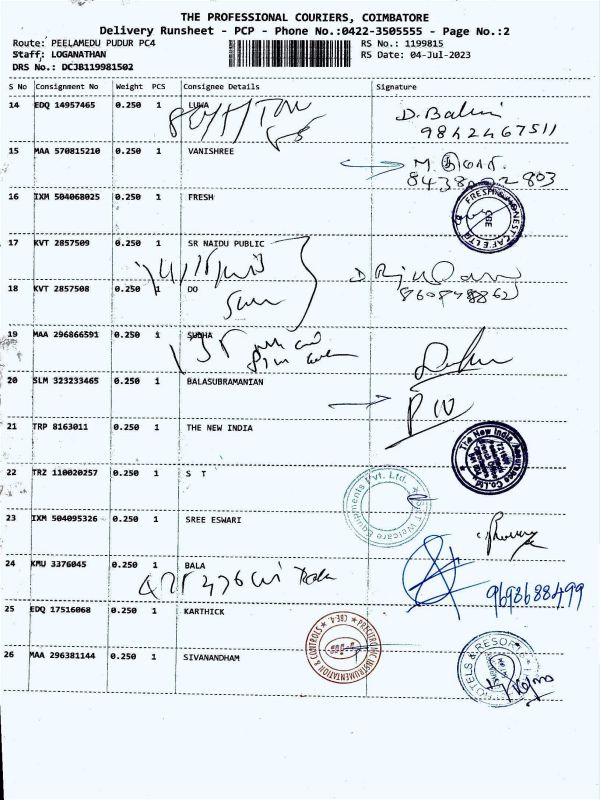 THE PROFESSIONAL COURIERS, COIMBATORE
Delivery Runsheet - PCP - Phone No.:0422-3505555 - Page No.:2
Route: PEELAMEDU PUDUR PC4 RS No.: 1199815
Staff: LOGANATHAN RS Date: 04-Jul-2023
DRS No.: DCJB119981502
S No Consignment No Weight PCS Consignee Details Signature
14 EDQ 14957465 0.250 1 LUWA
9842467511
15 MAA 570815210 0.250 1 VANISHREE
16 IXM 504068025 0.250 1 FRESH
FRESH & HONEST CAFE LTD
CBE
17 KVT 2857509 0.250 1 SR NAIDU PUBLIC
18 KVT 2857508 0.250 1 DO
19 MAA 296866591 0.250 1 SUDHA
20 SLM 323233465 0.250 1 BALASUBRAMANIAN
21 TRP 8163011 0.250 1 THE NEW INDIA
The New India Assurance Co.Ltd
22 TRZ 110020257 0.250 1 S T
Welcare Equipments Pvt. Ltd.
23 IXM 504095326 0.250 1 SREE ESWARI
24 KMU 3376045 0.250 1 BALA
9698688499
25 EDQ 17516068 0.250 1 KARTHICK
INSTRUMENTATION & CONTROLS CBE-4
26 MAA 296381144 0.250 1 SIVANANDHAM
HOTELS & RESORTS